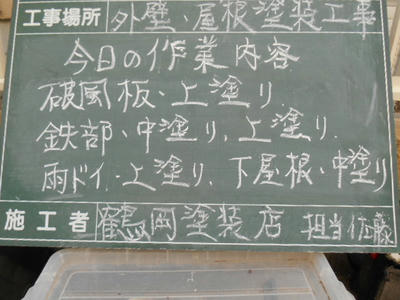 工事場所 外壁、屋根塗装工事
今日の作業内容
破風板、上塗り
鉄部、中塗り、上塗り.
雨ドイ、上塗り、下屋根、中塗り
施工者 鶴岡塗装店 担当佐藤